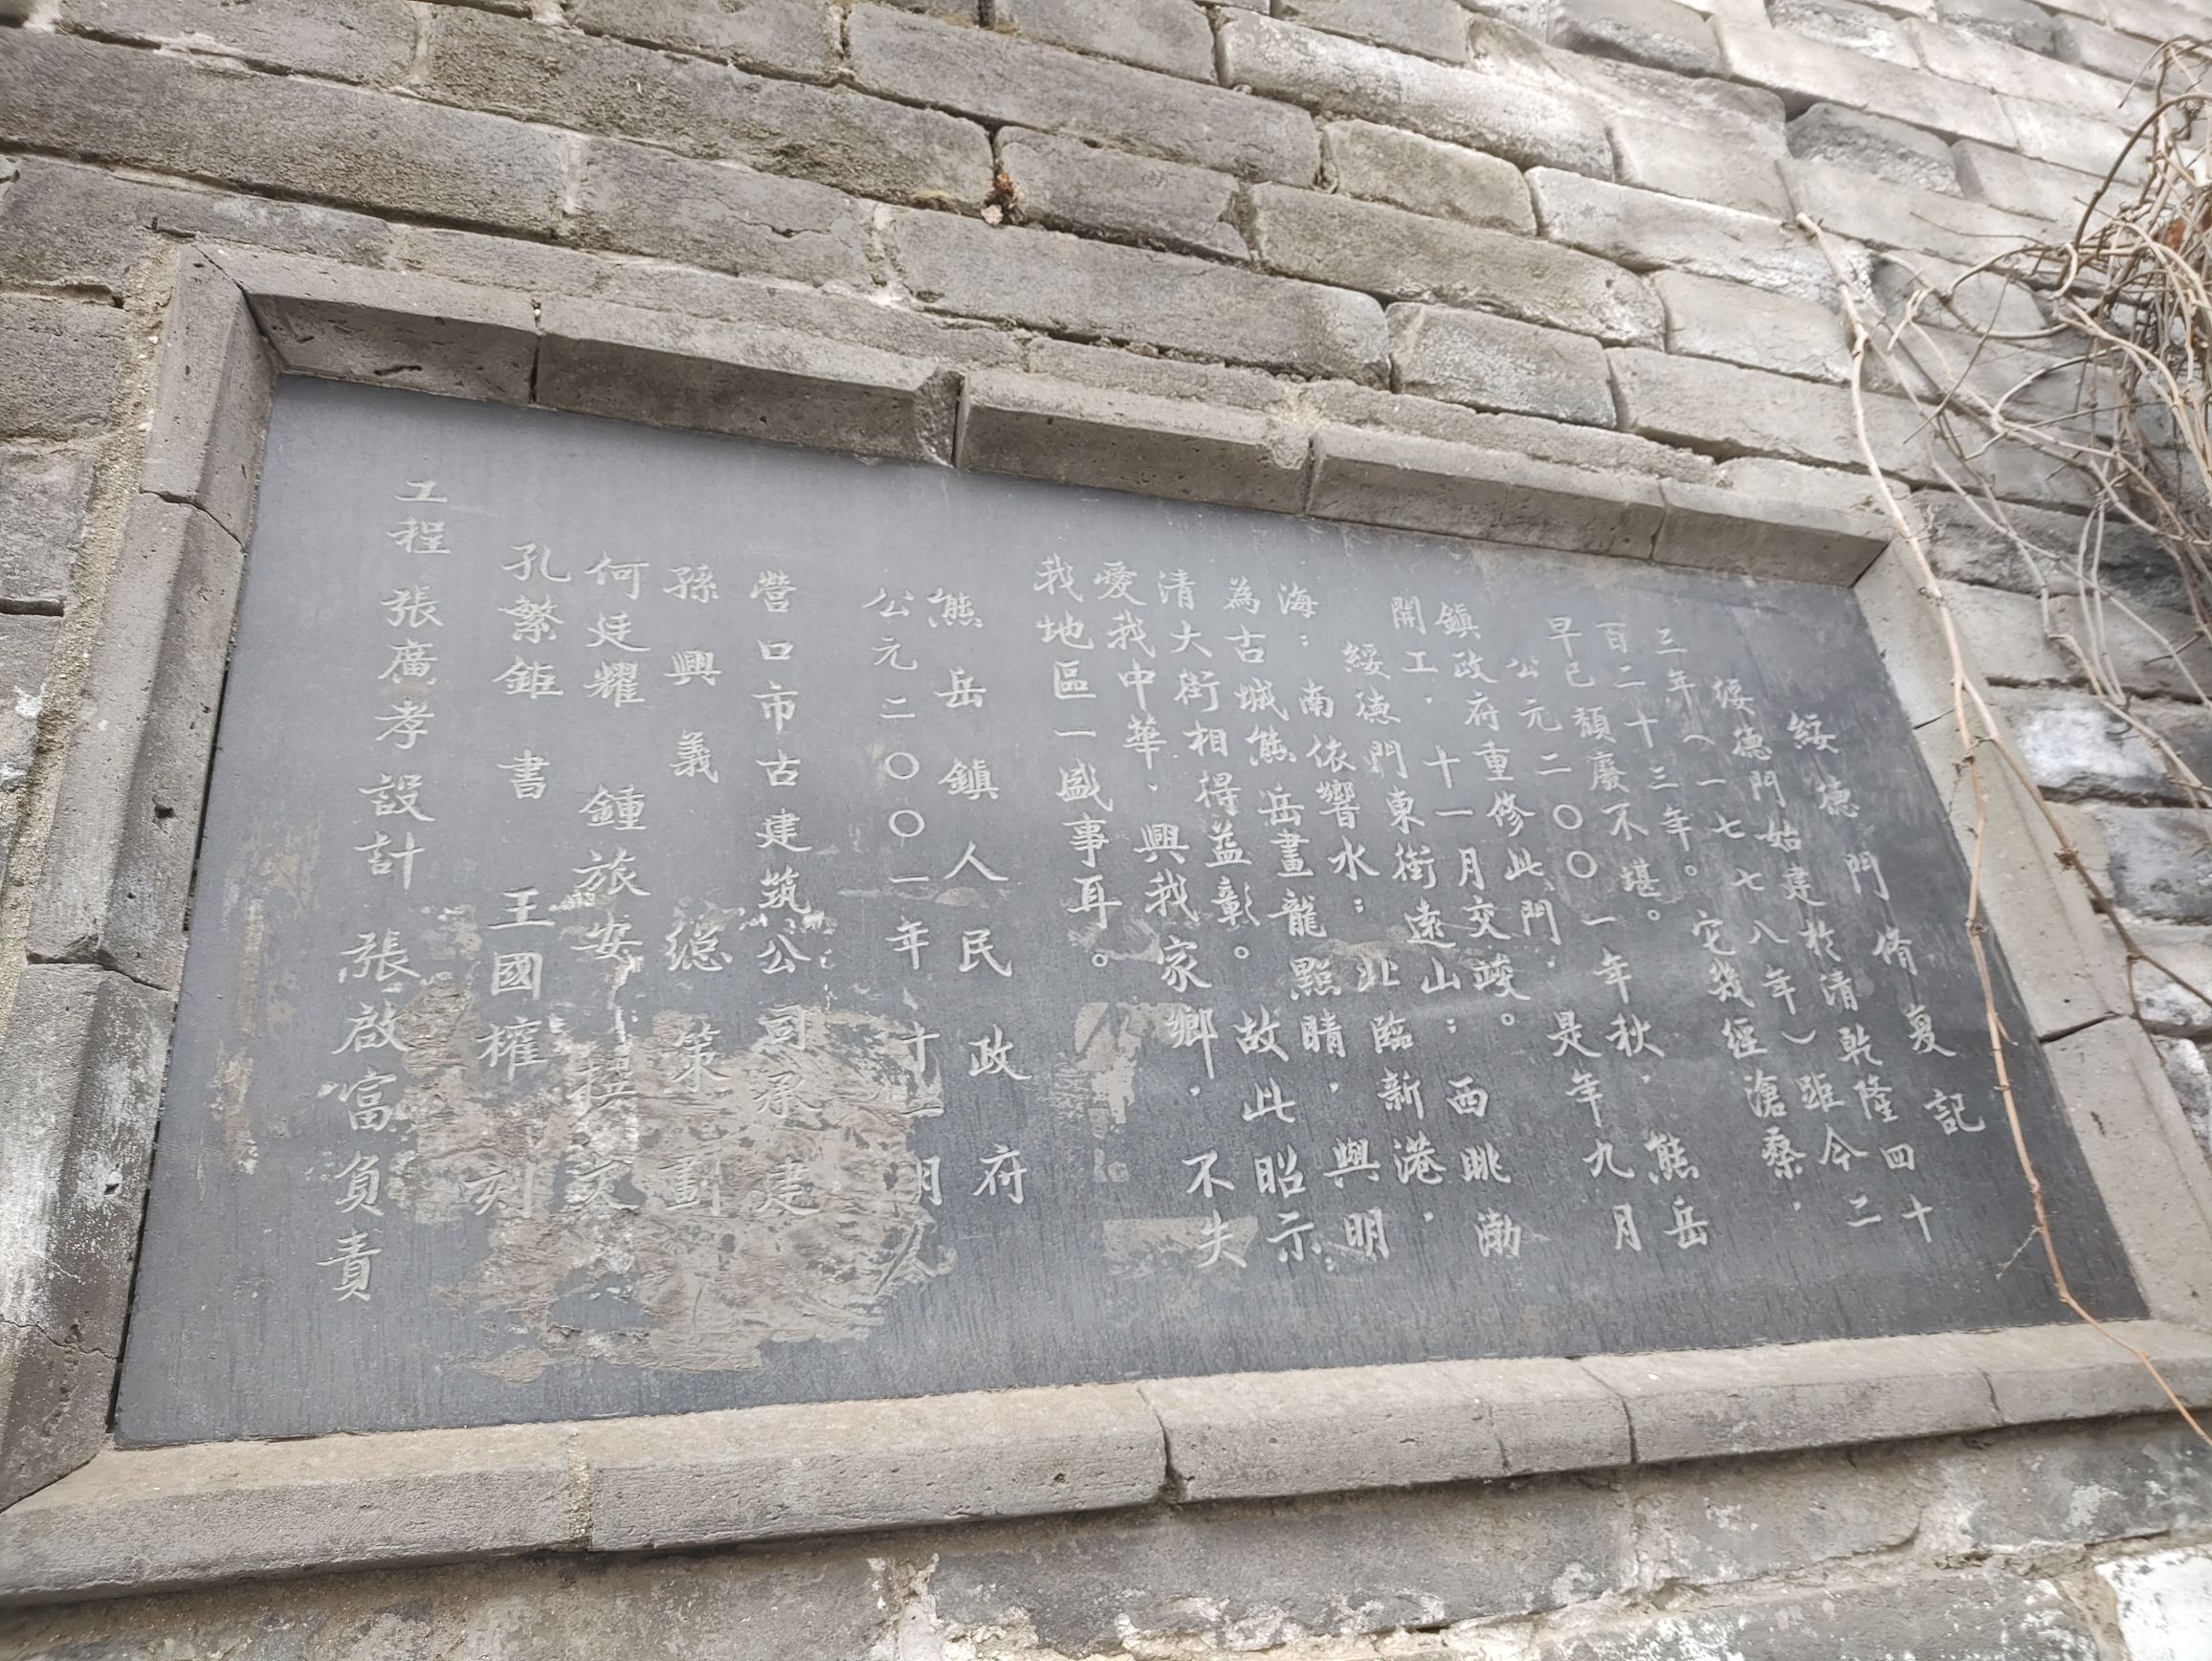 綏德門脩复記
綏德門始建於清乾隆四十
三年（一七七八年）距今二
百二十三年。它幾經滄桑，
早已頹廢不堪。
公元二〇〇一年秋，熊岳
鎮政府重修此門，是年九月
開工，十一月交竣。
綏德門東街遠山；西眺渤
海；南依響水；北臨新港，
為古城熊岳畫龍點睛，與明
清大街相得益彰。故此昭示
愛我中華、興我家鄉，不失
我地區一盛事耳。
熊岳鎮人民政府
公元二〇〇一年、十一月
營口市古建筑公司承建
孫興義 總策劃
何廷耀 鍾旅安 撰文
孔繁鉅 書 王國權 刻
工程 張廣孝設計 張啟富負責